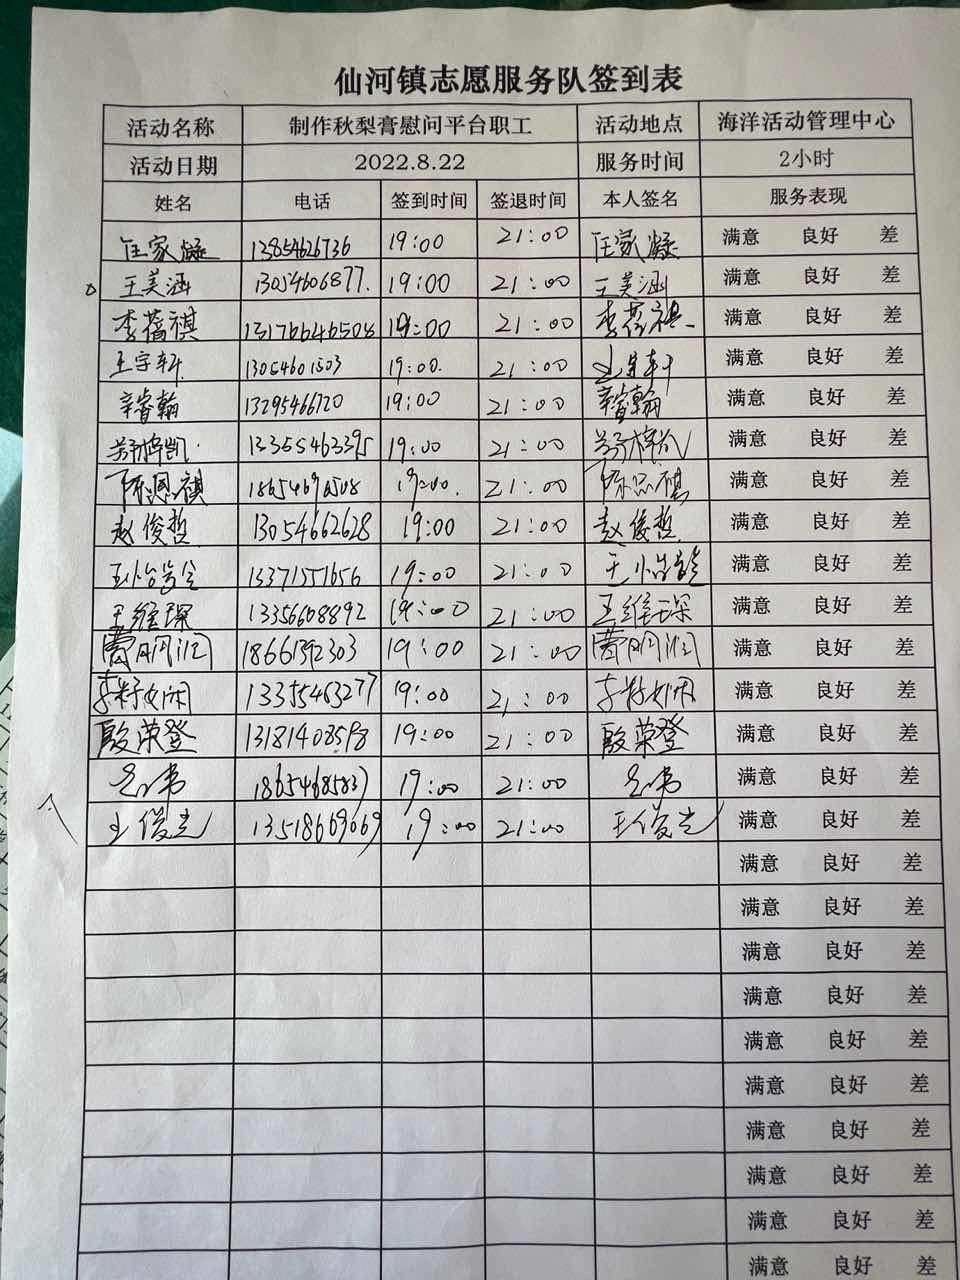 仙河镇志愿服务队签到表
活动名称 制作秋梨膏慰问平台职工 活动地点 海洋活动管理中心
活动日期 2022.8.22 服务时间 2小时
姓名 电话 签到时间 签退时间 本人签名 服务表现
匡家凝 13854626736 19:00 21:00 匡家凝 满意 良好 差
王美涵 13054606877. 19:00 21:00 王美涵 满意 良好 差
李蓓祺 13176646508 19:00 21:00 李蓓祺 满意 良好 差
王宇轩 13054601503 19:00. 21:00 满意 良好 差
辛睿翰 13295466720 19:00 21:00 辛睿翰 满意 良好 差
13355463395 19:00 21:00 满意 良好 差
陈思祺 18654696508 19:00. 21:00 陈思祺 满意 良好 差
赵俊哲 13054662628 19:00 21:00 赵俊哲 满意 良好 差
13371551656 19:00 21:00 满意 良好 差
王维琛 13356608892 19:00 21:00 王维琛 满意 良好 差
曹明润 18661392303 19:00 21:00 曹明润 满意 良好 差
13355463277 19:00 21:00 满意 良好 差
殷荣登 13181408518 19:00 21:00 殷荣登 满意 良好 差
18654685837 19:00 21:00 满意 良好 差
王俊光 13518669069 19:00 21:00 王俊光 满意 良好 差
满意 良好 差
满意 良好 差
满意 良好 差
满意 良好 差
满意 良好 差
满意 良好 差
满意 良好 差
满意 良好 差
满意 良好 差
满意 良好 差